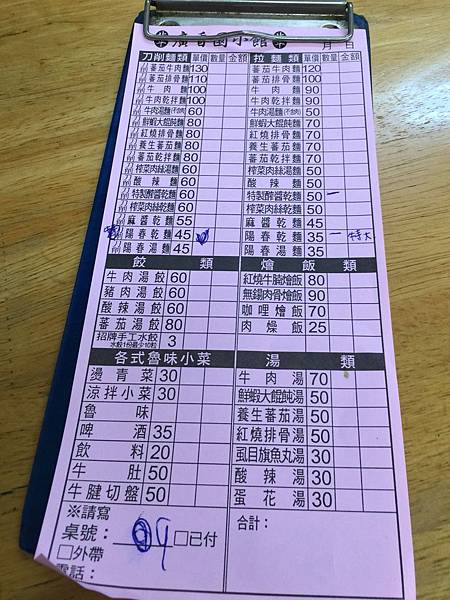 廣香園小館
月 日
刀削麵類 單價 數量 金額
番茄牛肉麵 130
番茄排骨麵 110
牛肉麵 100
牛肉乾拌麵 100
牛肉湯麵(不含肉) 60
鮮蝦大餛飩麵 80
紅燒排骨麵 80
養生番茄麵 80
番茄乾拌麵 80
榨菜肉絲湯麵 60
酸辣麵 60
特製醡醬乾麵 60
榨菜肉絲乾麵 60
麻醬乾麵 55
陽春乾麵 45
陽春湯麵 45
拉麵類 單價 數量 金額
番茄牛肉麵 120
番茄排骨麵 100
牛肉麵 90
牛肉乾拌麵 90
牛肉湯麵(不含肉) 50
鮮蝦大餛飩麵 70
紅燒排骨麵 70
養生番茄麵 70
番茄乾拌麵 70
榨菜肉絲湯麵 50
酸辣麵 50
特製醡醬乾麵 50 一
榨菜肉絲乾麵 50
麻醬乾麵 45
陽春乾麵 35 一 特大
陽春湯麵 35
餃類
牛肉湯餃 60
豬肉湯餃 60
酸辣湯餃 60
番茄湯餃 80
招牌手工水餃 3
水餃1份最少10粒
燴飯類
紅燒牛腩燴飯 80
無錫肉骨燴飯 90
咖哩燴飯 70
肉燥飯 25
各式魯味小菜
燙青菜 30
涼拌小菜 30
魯味
啤酒 35
飲料 20
牛肚 50
牛腱切盤 50
湯類
牛肉湯 70
鮮蝦大餛飩湯 50
養生番茄湯 50
紅燒排骨湯 50
虱目旗魚丸湯 30
酸辣湯 30
蛋花湯 30
※請寫
桌號： 04 □已付
□外帶
電話：
合計：